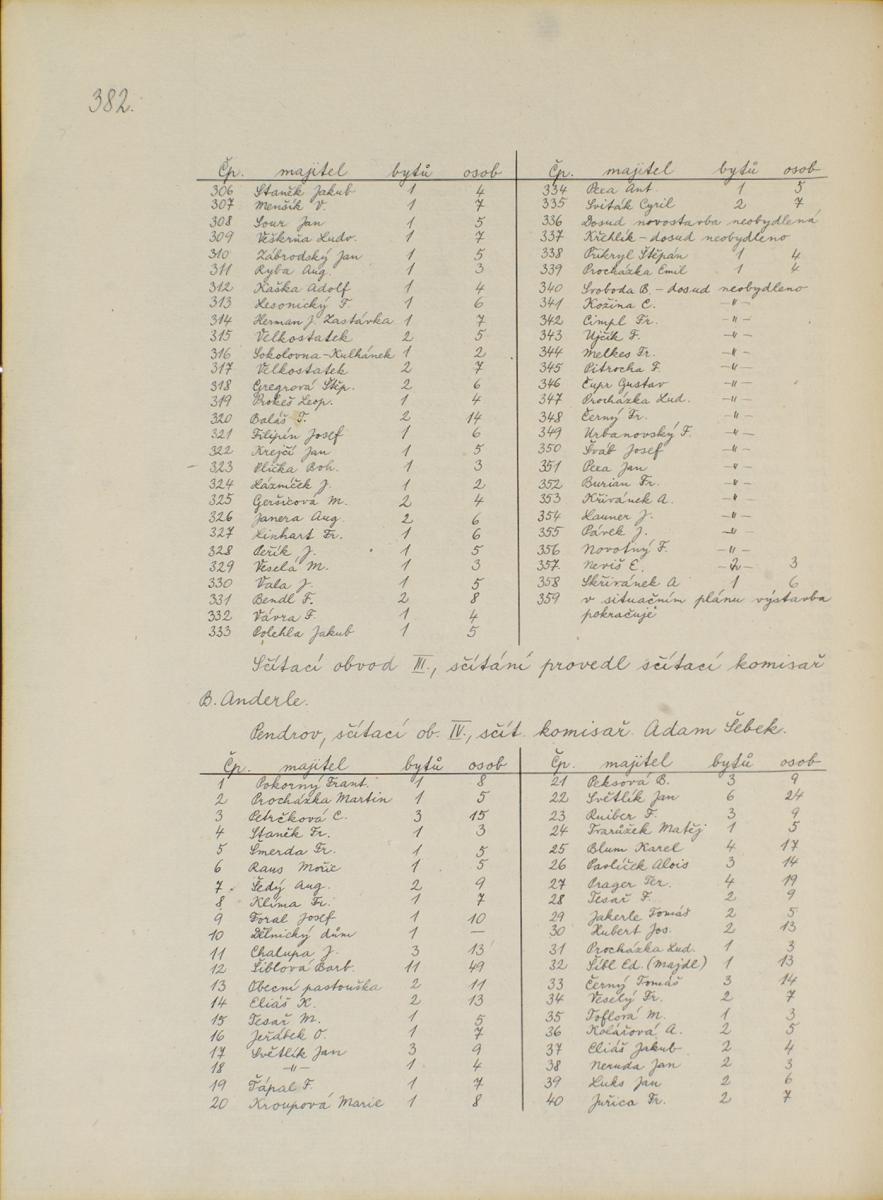 382.
Čp. majitel bytů osob
306 Staněk Jakub 1 4
307 Menšík V. 1 7
308 Sour Jan 1 5
309 Veškrňa Ludv. 1 7
310 Zábrodský Jan 1 5
311 Ryba Aug. 1 3
312 Kaška Adolf 1 4
313 Lesonický F. 1 6
314 Herman J. Zastávka 1 7
315 Velkostatek 2 5
316 Sokolovna-Kulhánek 1 2
317 Velkostatek 2 7
318 Gregrová Štěp. 2 6
319 Prokeš Leop. 1 4
320 Baláš F. 2 14
321 Filipín Josef 1 6
322 Krejčí Jan 1 5
323 Vlička Boh. 1 3
324 Házníček J. 1 2
325 Geršicová M. 2 4
326 Janera Aug. 2 6
327 Linhart Fr. 1 6
328 Peřík J. 1 5
329 Veselá M. 1 3
330 Vala J. 1 5
331 Bendl F. 2 8
332 Vávra F. 1 4
333 Polehla Jakub 1 5
Čp. majitel bytů osob
334 Pexa Ant 1 5
335 Sviták Cyril 2 7
336 Dosud novostavba neobydlená
337 Křehlík - dosud neobydleno
338 Přikryl Štěpán 1 4
339 Procházka Emil 1 4
340 Svoboda B. - dosud neobydleno
341 Kožina C. -"-
342 Cimpl Fr. -"-
343 Ujčík F. -"-
344 Melkes Fr. -"-
345 Pitrocha F. -"-
346 Cupr Gustav -"-
347 Procházka Lud. -"-
348 Černý Fr. -"-
349 Urbanovský F. -"-
350 Šváb Josef -"-
351 Pexa Jan -"-
352 Burian Fr. -"-
353 Křivánek A. -"-
354 Hauner J. -"-
355 Pávek J. -"-
356 Novotný F. -"-
357 Neviš E. 2 3
358 Skřivánek A 1 6
359 v situačním plánu výstavba
pokračuje
Sčítací obvod III., sčítání provedl sčítací komisař
B. Anderle.
Pendrov, sčítací ob. IV., sčít. komisař Adam Šebek.
Čp. majitel bytů osob
1 Pokorný Frant. 1 8
2 Procházka Martin 1 5
3 Petrčková C. 3 15
4 Staněk Fr. 1 3
5 Šmerda Fr. 1 5
6 Raus Mořic 1 5
7 Šedý Aug. 2 9
8 Klíma Fr. 1 7
9 Foral Josef 1 10
10 Dělnický dům 1 —
11 Chalupa J. 3 13
12 Šiblová Barb. 11 49
13 Obecní pastouška 2 11
14 Eliáš K. 2 13
15 Tesař M. 1 5
16 Jeřábek O. 1 7
17 Světlík Jan 3 9
18 -"- 1 4
19 Ťápal F. 1 7
20 Kroupová Marie 1 8
Čp. majitel bytů osob
21 Peksová B. 3 9
22 Světlík Jan 6 24
23 Ruiber F. 3 9
24 Tvarůžek Matěj 1 5
25 Blum Karel 4 17
26 Pavlíček Alois 3 14
27 Prager Ter. 4 19
28 Tesař F. 2 9
29 Jakerle Tomáš 2 5
30 Hubert Jos. 2 13
31 Procházka Lud. 1 3
32 Šibl Ed. (Majdl) 1 13
33 Černý Tomáš 3 14
34 Veselý Fr. 2 7
35 Toflová M. 1 3
36 Kolářová A. 2 5
37 Eliáš Jakub 2 4
38 Neruda Jan 2 3
39 Luks Jan 2 6
40 Juřica Fr. 2 7